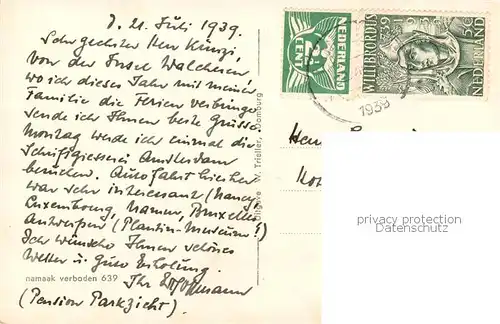 D. 21. Juli 1939.
Sehr geehrter Herr Künzi,
von der Insel Walcheren,
wo ich dieses Jahr mit meiner
Familie die Ferien verbringe
sende ich Ihnen beste Grüsse
Montag werde ich einmal die
Schriftgiesserei Amsterdam
besuchen. Autofahrt hierher
war sehr interessant (Nancy,
Luxembourg, Namur, Bruxelles
Antwerpen (Plantin-Museum!)
Ich wünsche Ihnen schönes
Wetter u. gute Erholung.
Ihr
(Pension Parkzicht)
namaak verboden 639
Uitgave W. Trieller, Domburg
2½ CENT
NEDERLAND
WILLIBRORDUS
739 1939
5c
NEDERLAND
1939
privacy protection
Datenschutz